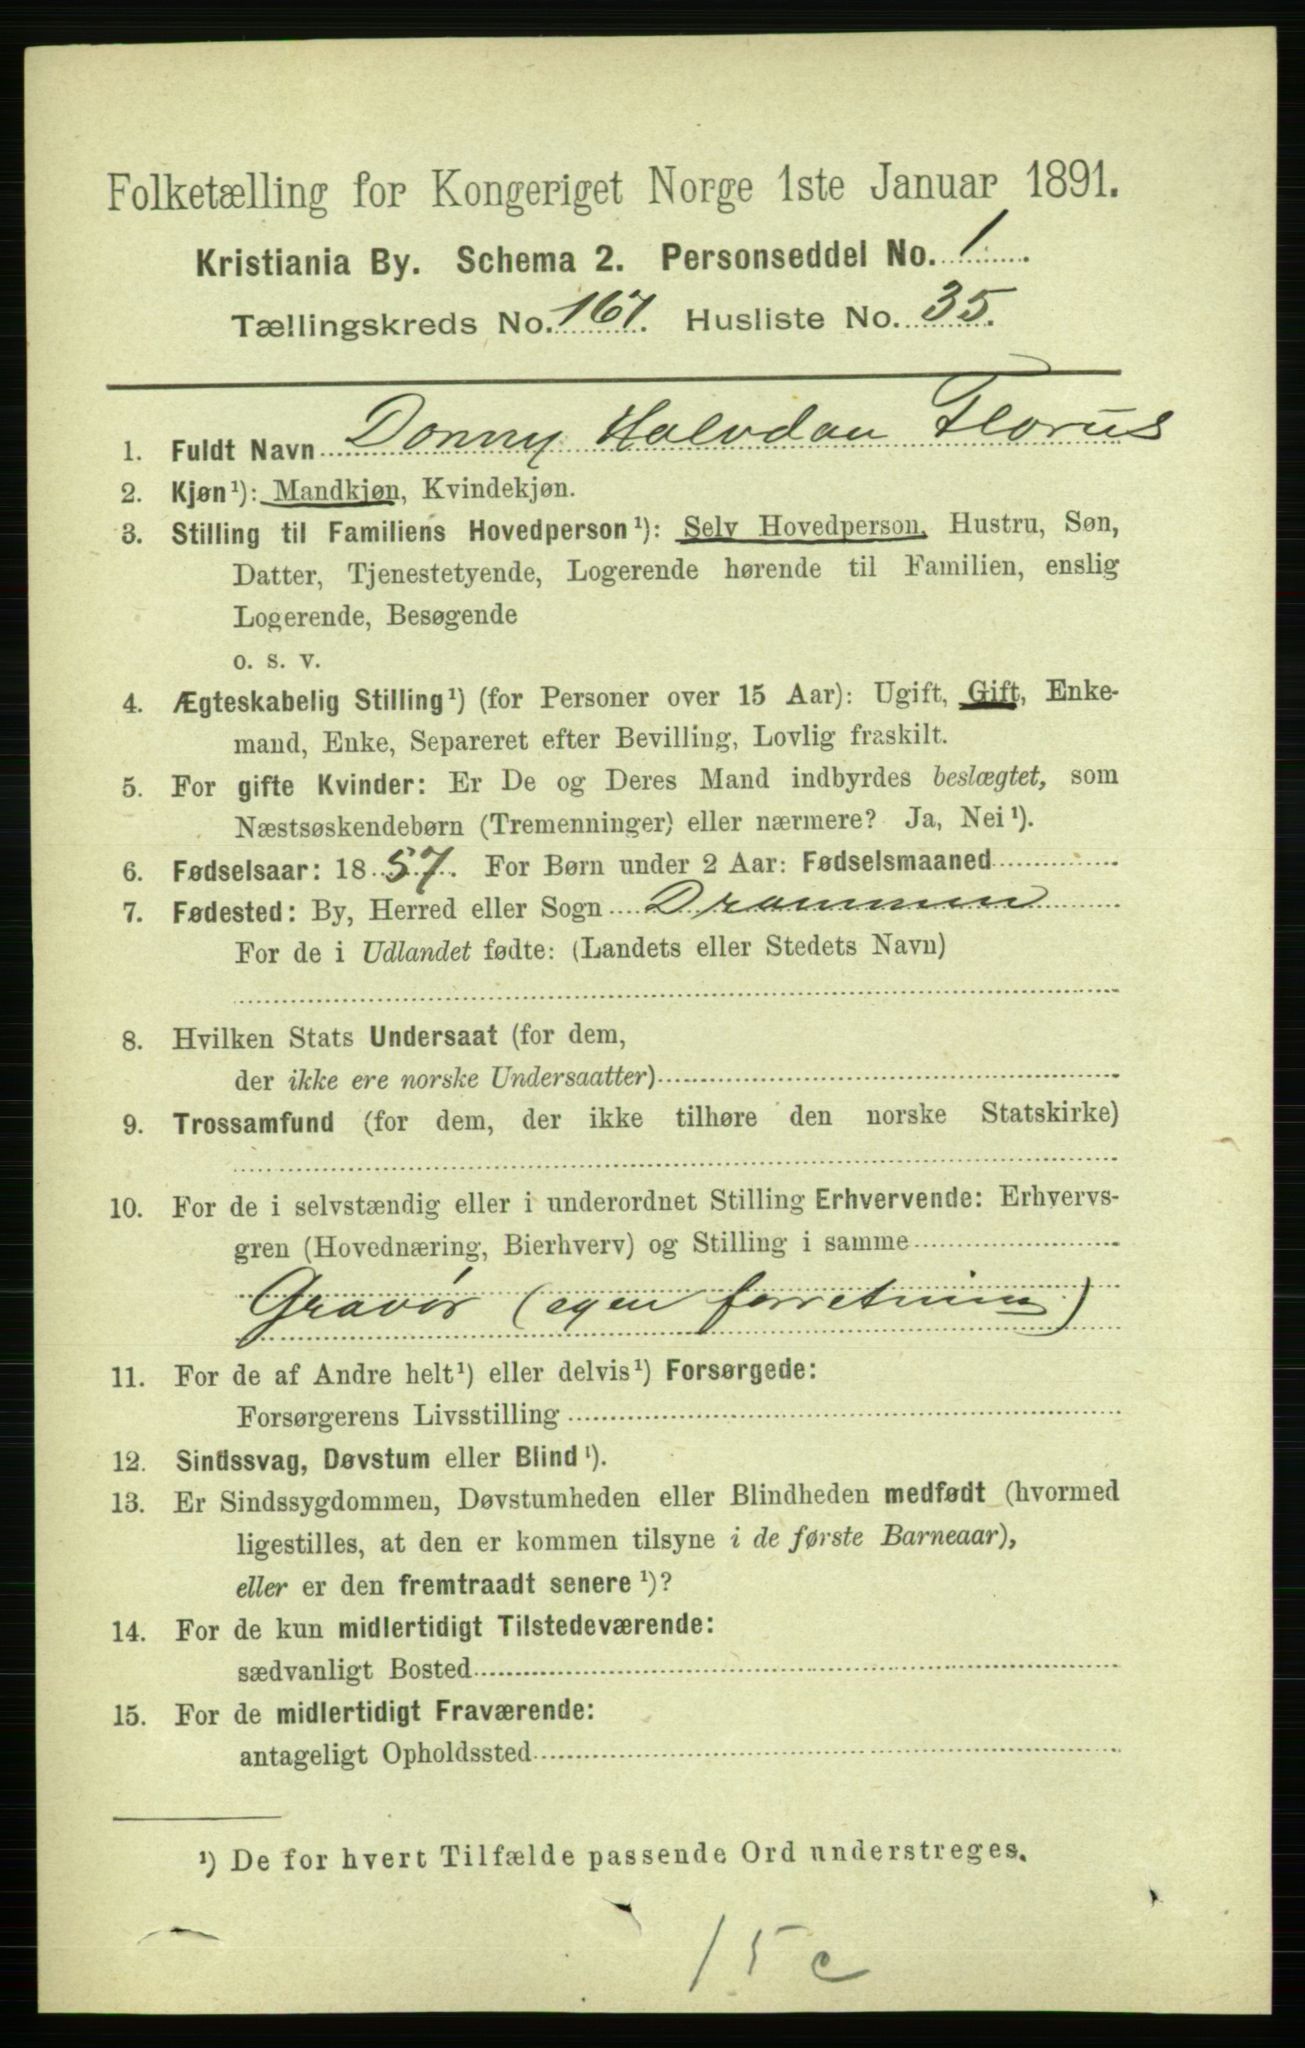 Folketælling for Kongeriget Norge 1ste Januar 1891.
Kristiania By. Schema 2. Personseddel No. 1.
Tællingskreds No. 167. Husliste No. 35.
1. Fuldt Navn Donny Halvdan Florus
2. Kjøn¹): Mandkjøn, Kvindekjøn.
3. Stilling til Familiens Hovedperson¹): Selv Hovedperson, Hustru, Søn,
Datter, Tjenestetyende, Logerende hørende til Familien, enslig
Logerende, Besøgende
o. s. v.
4. Ægteskabelig Stilling¹) (for Personer over 15 Aar): Ugift, Gift, Enke-
mand, Enke, Separeret efter Bevilling, Lovlig fraskilt.
5. For gifte Kvinder: Er De og Deres Mand indbyrdes beslægtet, som
Næstsøskendebørn (Tremenninger) eller nærmere? Ja, Nei¹).
6. Fødselsaar: 1857. For Børn under 2 Aar: Fødselsmaaned
7. Fødested: By, Herred eller Sogn Drammen
For de i Udlandet fødte: (Landets eller Stedets Navn)
8. Hvilken Stats Undersaat (for dem,
der ikke ere norske Undersaatter)
9. Trossamfund (for dem, der ikke tilhøre den norske Statskirke)
10. For de i selvstændig eller i underordnet Stilling Erhvervende: Erhvervs-
gren (Hovednæring, Bierhverv) og Stilling i samme
Gravør (egen forretning)
11. For de af Andre helt¹) eller delvis¹) Forsørgede:
Forsørgerens Livsstilling
12. Sindssvag, Døvstum eller Blind¹).
13. Er Sindssygdommen, Døvstumheden eller Blindheden medfødt (hvormed
ligestilles, at den er kommen tilsyne i de første Barneaar),
eller er den fremtraadt senere¹)?
14. For de kun midlertidigt Tilstedeværende:
sædvanligt Bosted
15. For de midlertidigt Fraværende:
antageligt Opholdssted
¹) De for hvert Tilfælde passende Ord understreges.
15 c